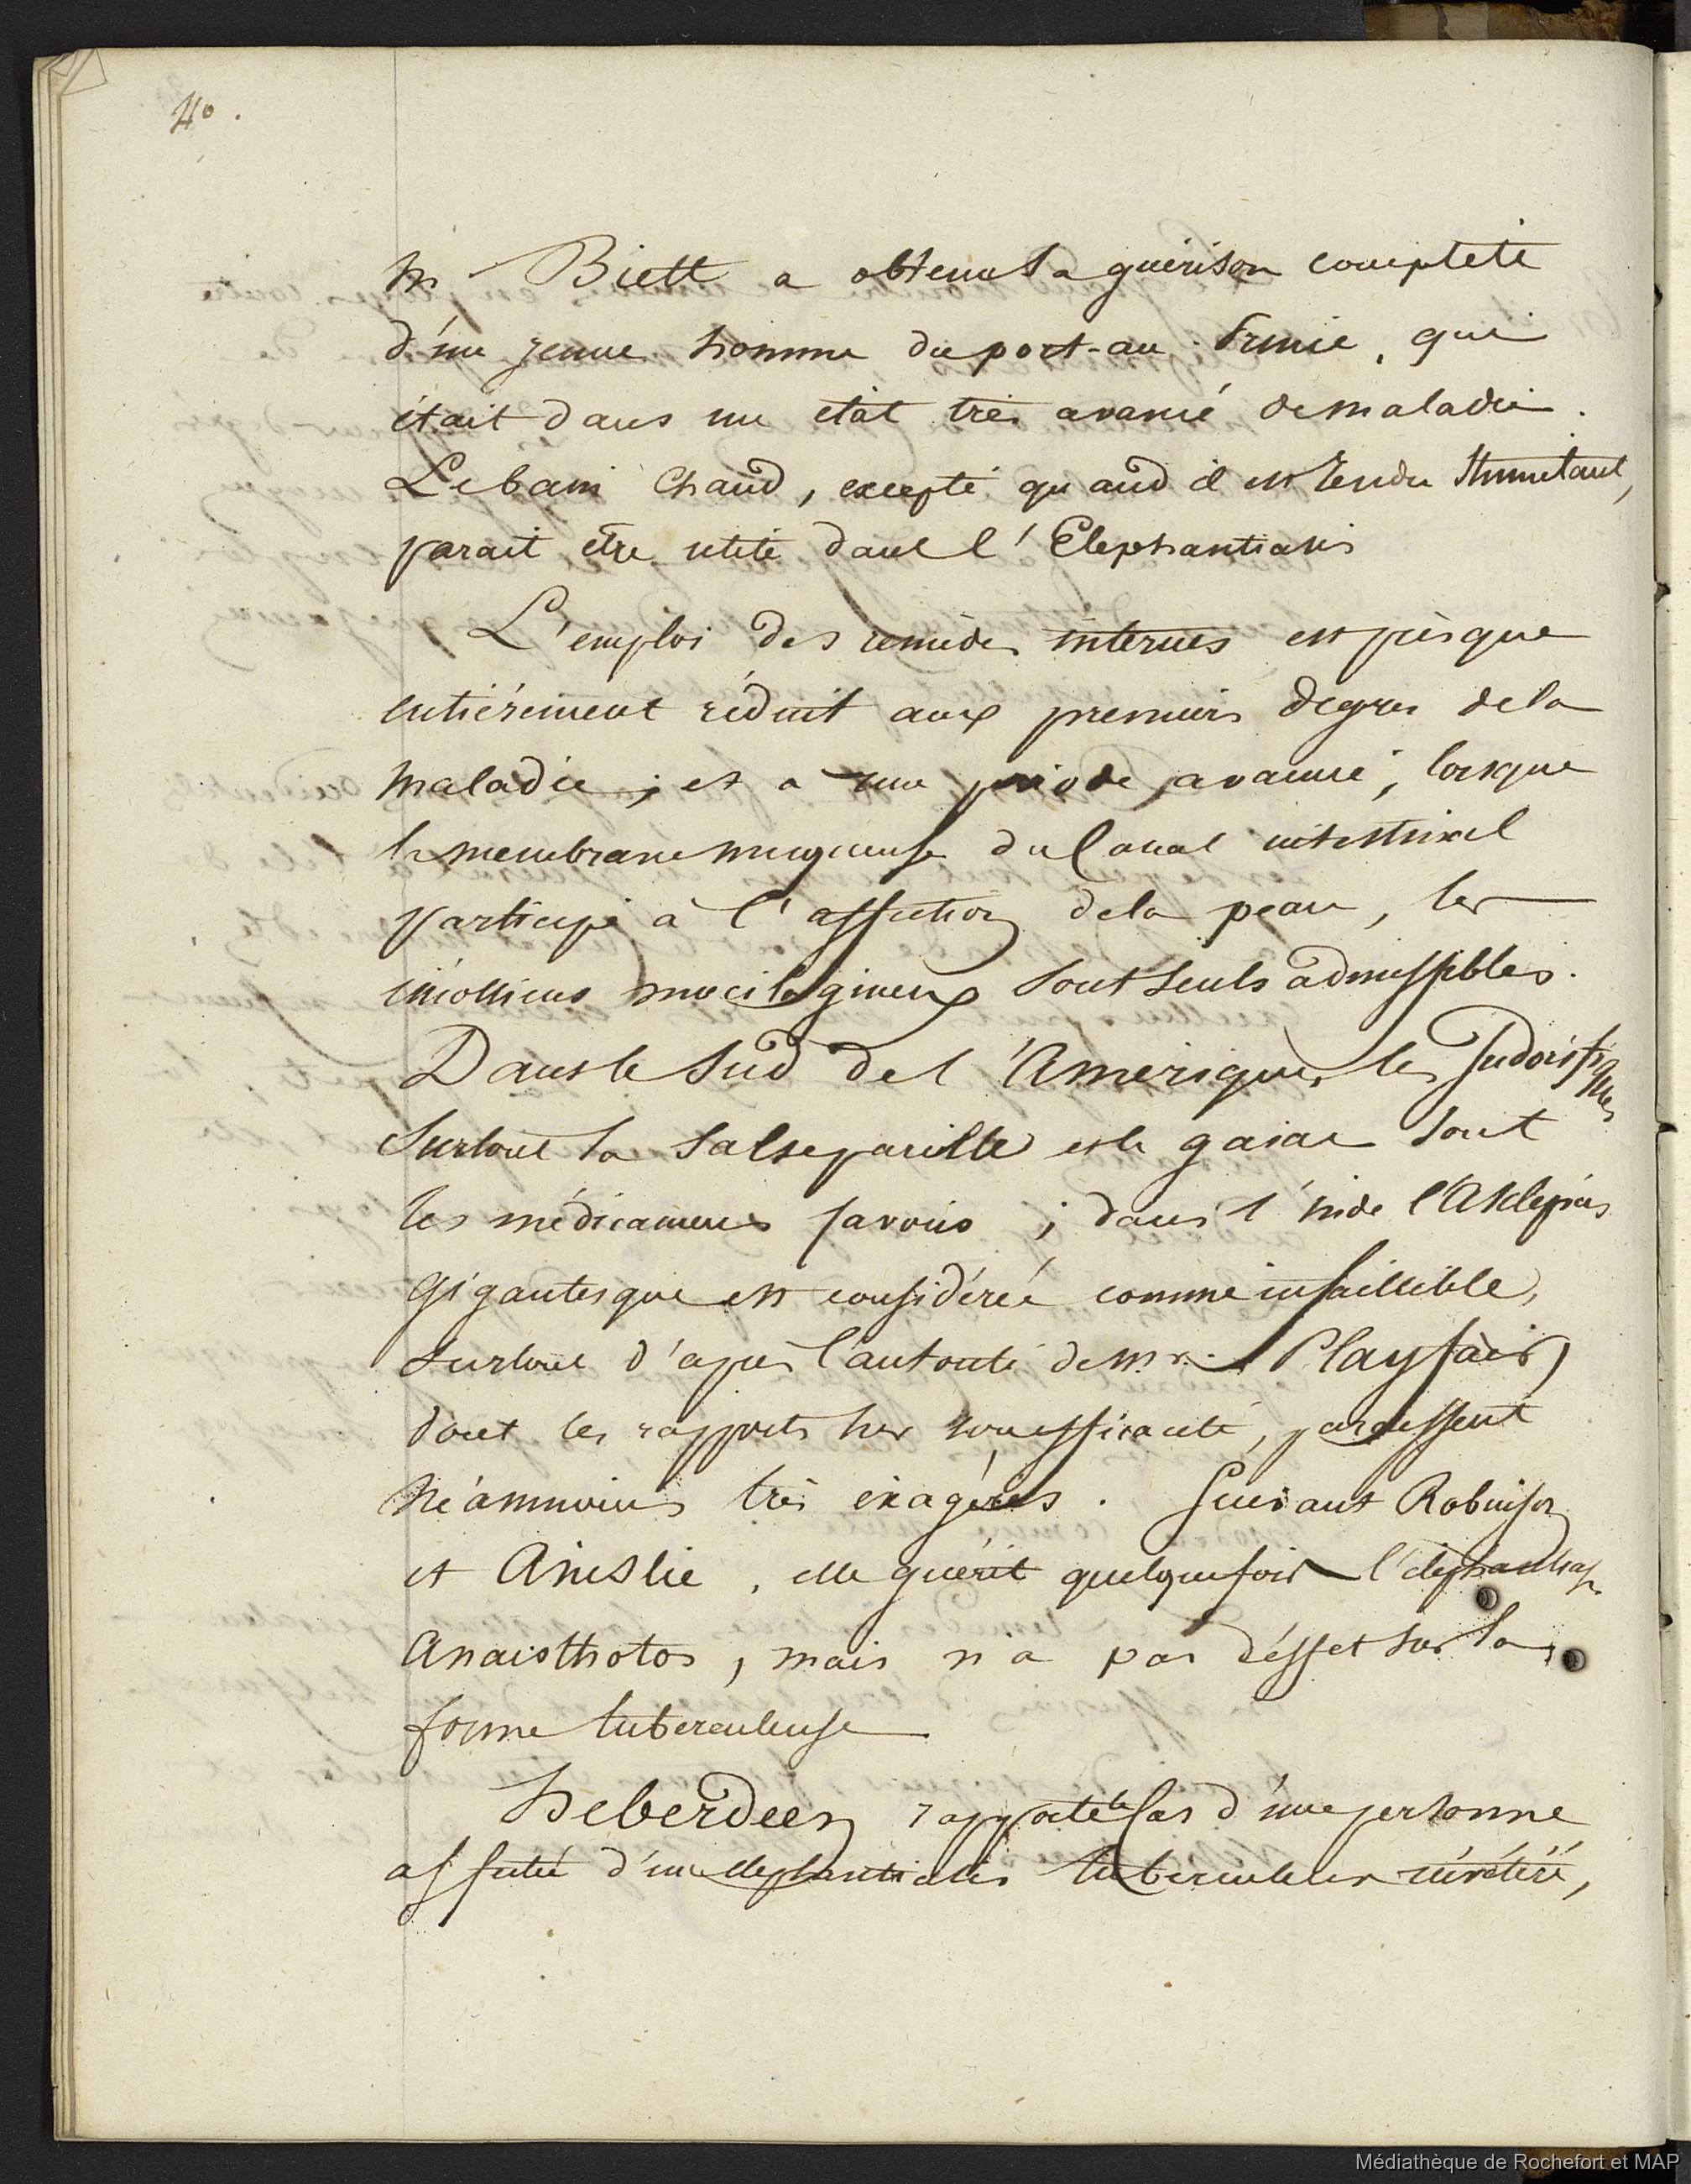 40.
M Biett a obtenu la guérison complète
d'un jeune homme du port-au Prince, qui
était dans un état très avancé de maladie.
Le bain chaud, excepté quand il est rendu stimulant,
parait être utile dans l'Elephantiasis
L'emploi des remèdes internes est presque
entièrement réduit aux premiers degrés de la
maladie; et a une période avancée, lorsque
la membrane muqueuse du Canal intestinal
participe à l'affection de la peau, les
émolliens mucilagineux sont seuls admissibles.
Dans le Sud de l'Amérique, les Sudorifiques
surtout la Salsepareille et le gaiac sont
les médicamens favoris; dans l'inde l'Asklepias
gigantesque est considérée comme infaillible,
surtout d'après l'autorité de Mr. Playfair,
dont les rapports sur son efficacité, paraissent
néammoins très exagérés. Suivant Robinson
et Ainslie, elle guérit quelquefois l'elephantiasis
Anaisthotos, mais n'a pas d'effet sur la
forme tuberculeuse
Heberdeen rapporte le Cas d'une personne
affectée d'un elephantiasis tuberculeux invétéré,
Médiathèque de Rochefort et MAP